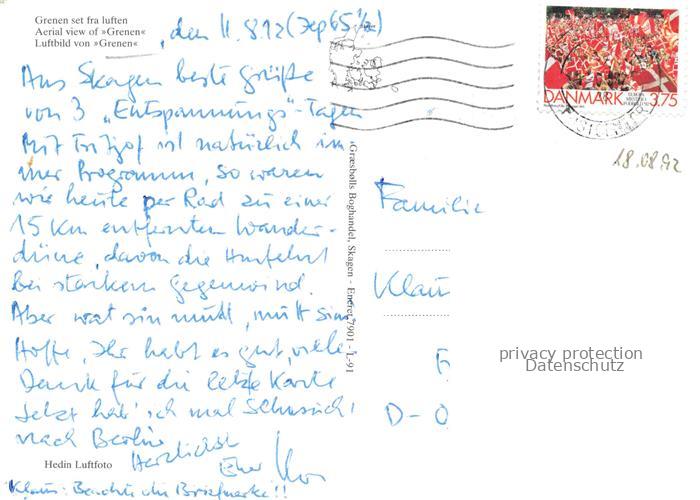 Grenen set fra luften
Aerial view of »Grenen«
Luftbild von »Grenen«
, den 11.8.92 (
Aus Skagen beste Grüße
von 3 „Entspannungs"-Tagen
Mit Fritjof ist natürlich im
mer Programm, so waren
wir heute per Rad zu einer
15 km entfernten Wander-
düne, davon die Hinfahrt
bei starkem Gegenwind.
Aber wat sin mutt, mutt sin
Hoffe, Ihr habt es gut, viele
Dank für die letzte Karte
Jetzt hab' ich mal Sehnsucht
nach Berlin
Herzlichst
Euer
Hedin Luftfoto
Klaus: Beachte die Briefmarke!!
Græsbølls Boghandel, Skagen - Eneret 7901 - L-91
DANMARK 3.75
18.08.92
Familie
Klaus
D-O
privacy protection
Datenschutz